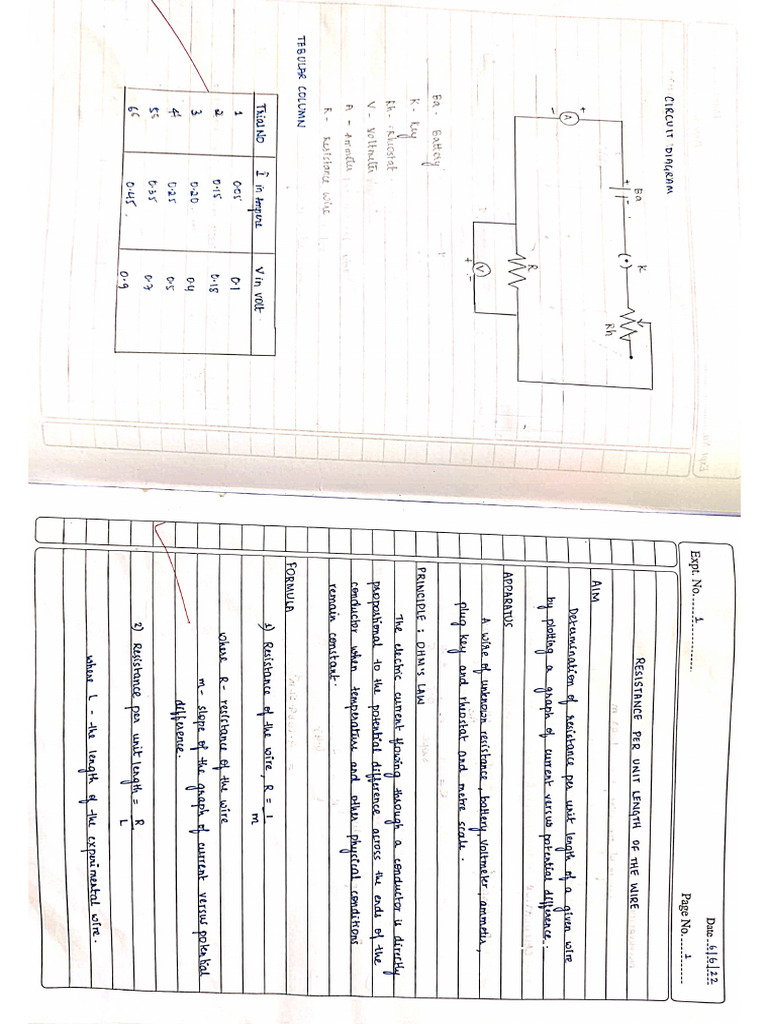 CIRCUIT DIAGRAM
Ba
K
Rh
+ A -
R
+ V -
Ba - Battery
K - Key
Rh - Rheostat
V - Voltmeter
A - Ammeter
R - Resistance wire
TEBULAR COLUMN
Trial No I in Ampere V in volt
1 0.05 0.1
2 0.15 0.18
3 0.20 0.4
4 0.25 0.5
5 0.35 0.7
6 0.45 0.9
Expt. No. 1
Date 6/6/22
Page No. 1
RESISTANCE PER UNIT LENGTH OF THE WIRE
AIM
Determination of resistance per unit length of a given wire
by plotting a graph of current versus potential difference.
APPARATUS
A wire of unknown resistance, battery, voltmeter, ammeter,
plug key and rhiostat and metre scale.
PRINCIPLE : OHM'S LAW
The electric current flowing through a conductor is directly
propostional to the potential difference across the ends of the
conductor when temperature and other physical conditions
remain constant.
FORMULA
1) Resistance of the wire, R = 1/m
where R - resistance of the wire
m - slope of the graph of current versus potential
difference.
2) Resistance per unit length = R/L
where L - the length of the experimental wire.